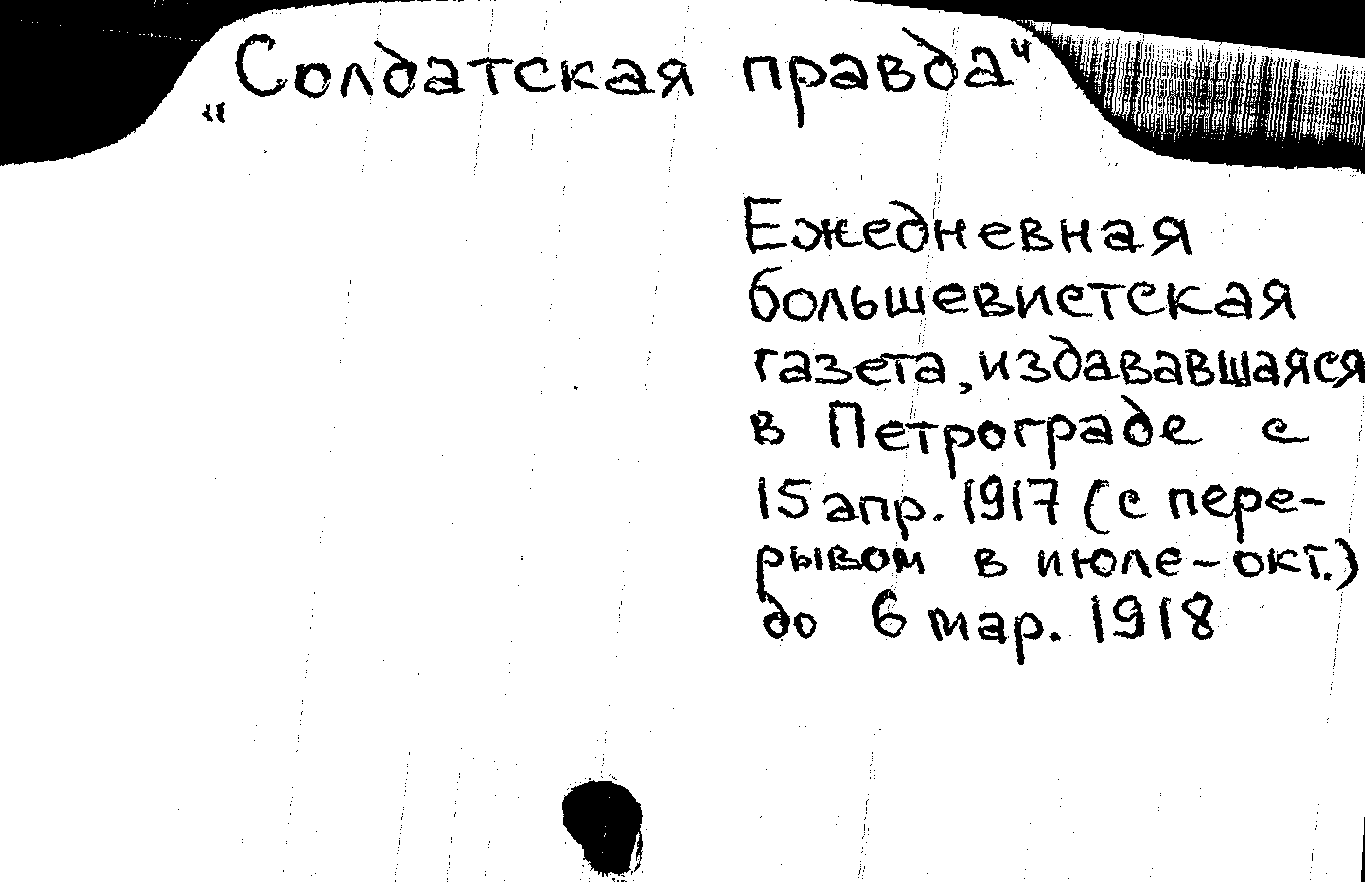 „Солдатская правда“
Ежедневная
большевистская
газета, издававшаяся
в Петрограде с
15 апр. 1917 (с пере-
рывом в июле-окт.)
до 6 мар. 1918